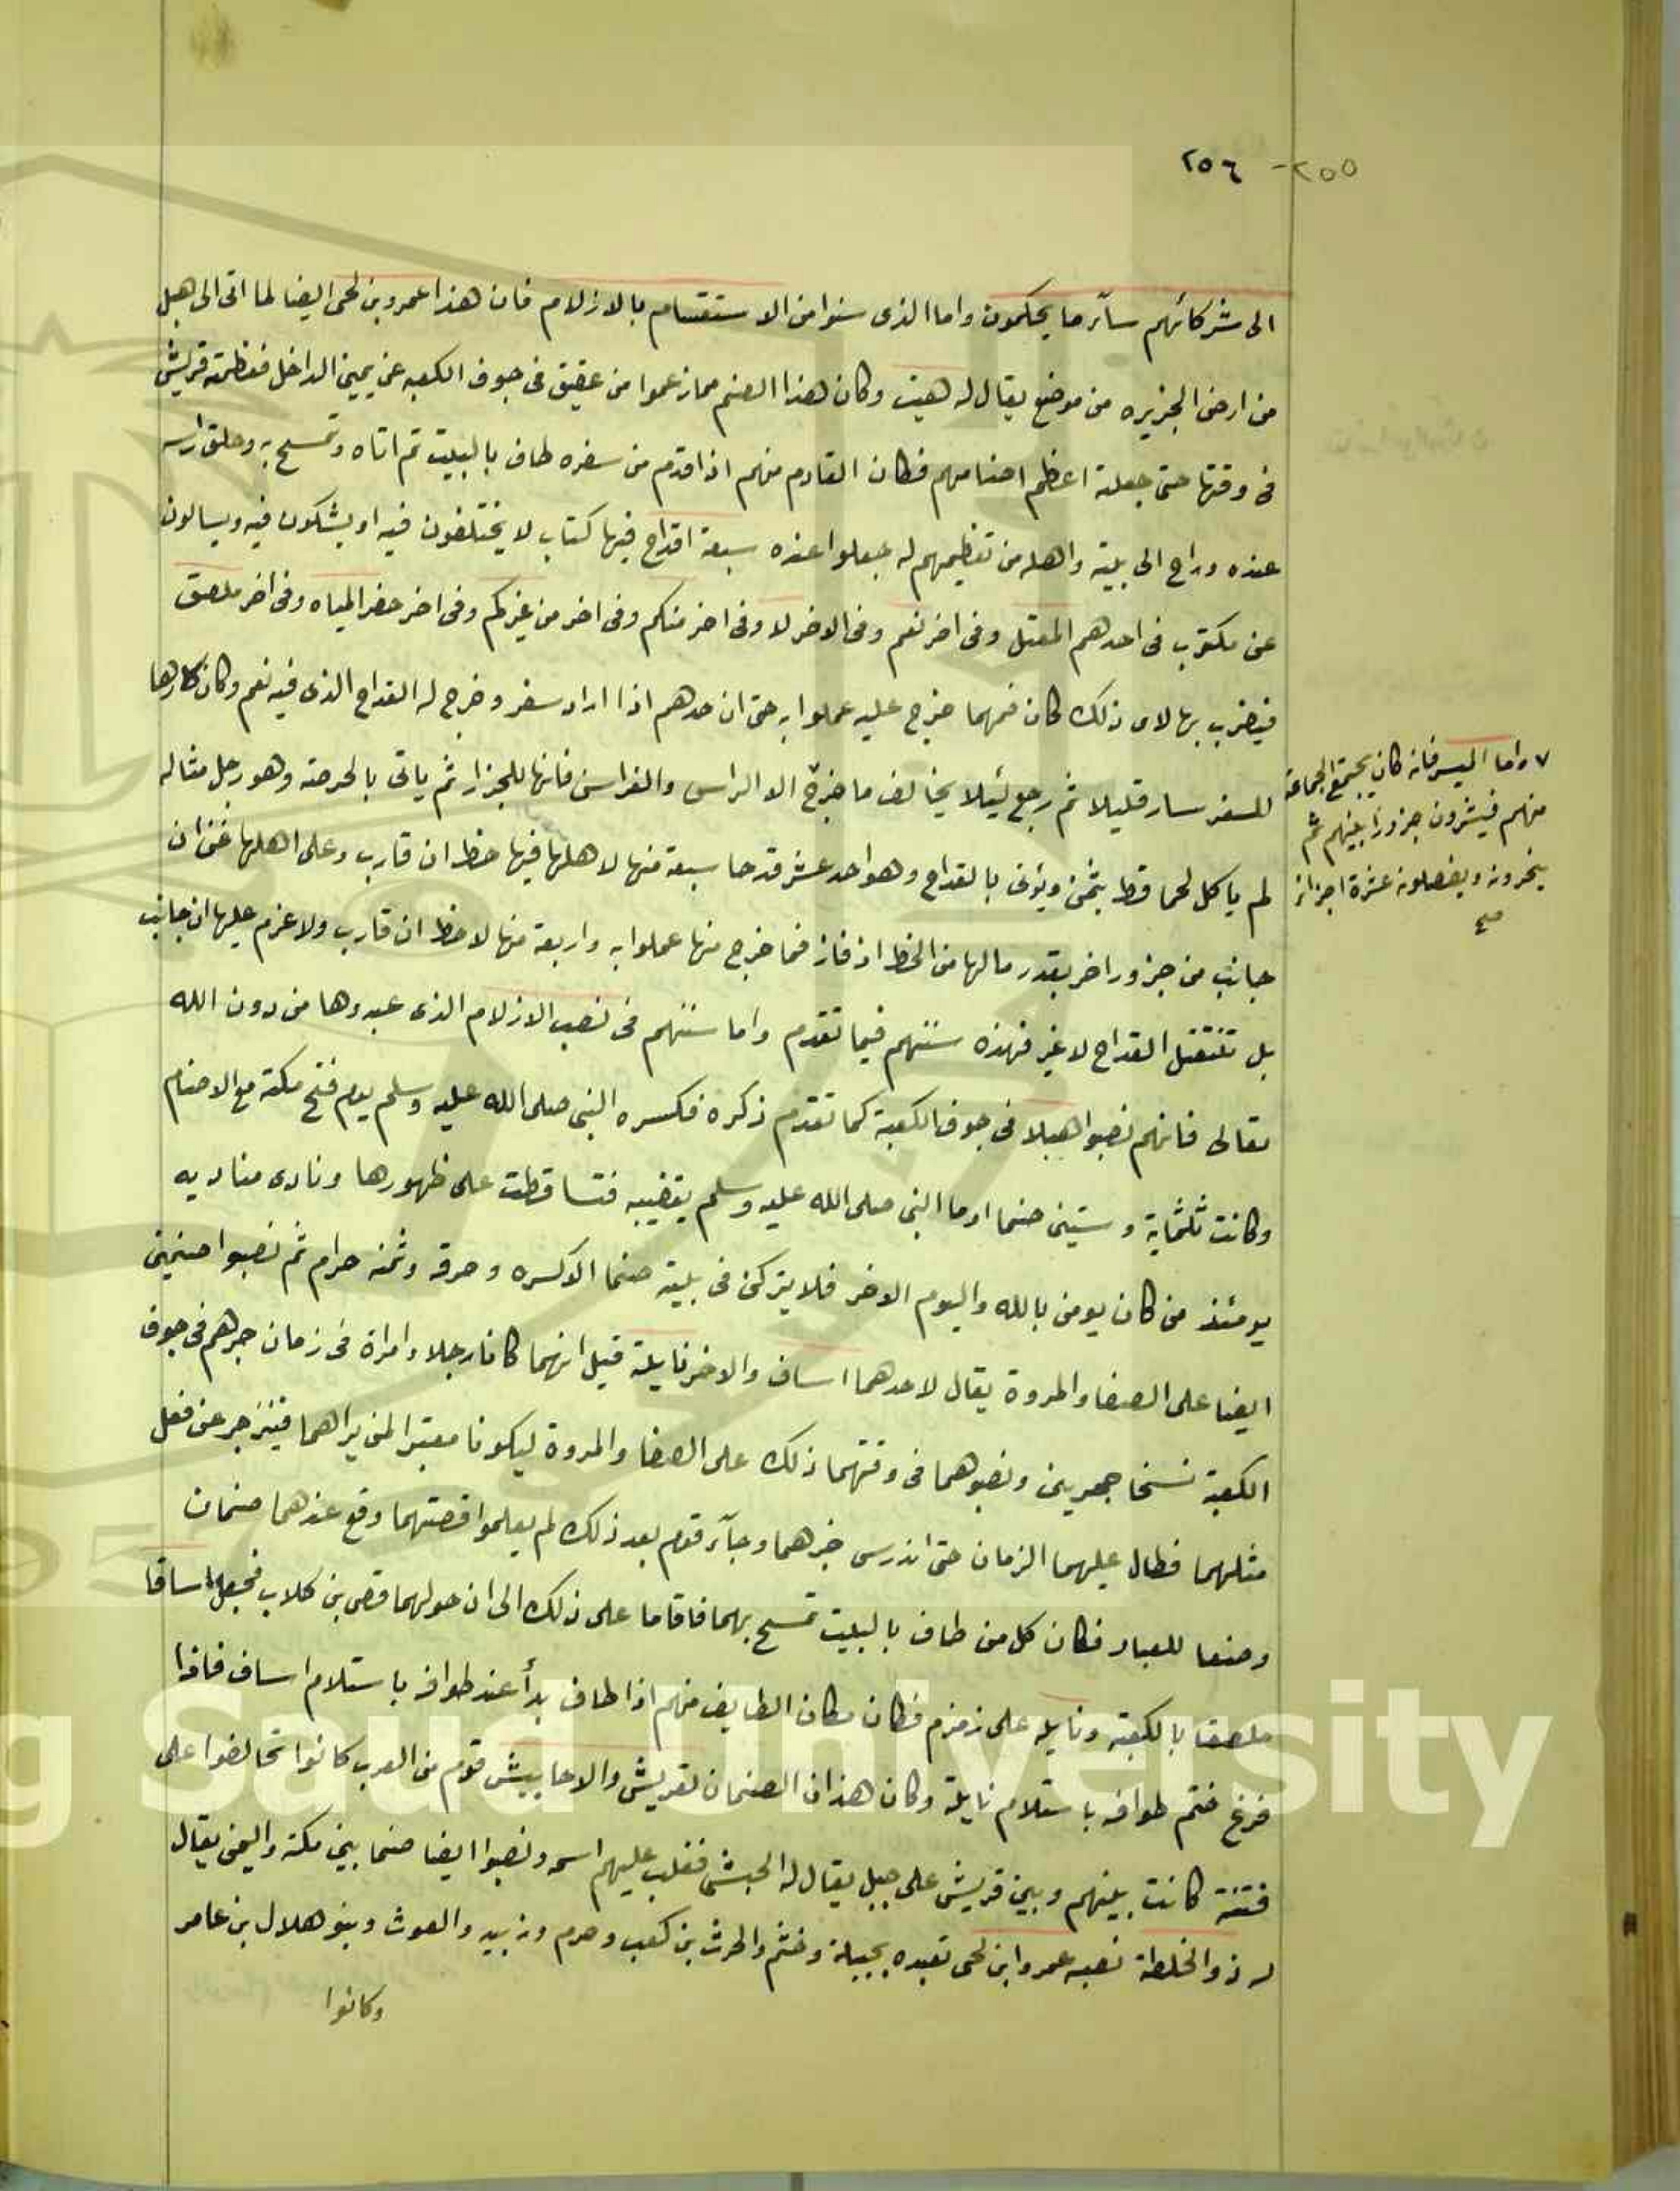 ٢٥٥- ٢٥٦
الى شركائهم سآء ما يحكمون واما الذى سنوا من الاستقسام بالازلام فان هذا عمرو بن لحى ايضا لما اتى الى هبل
من ارض الجزيره من موضع يقال له هيت وكان هذا الصنم مما زعموا من عقيق فى جوف الكعبه عن يمين الداخل فعظمته قريش
فى وقتها حتى جعلته اعظم اصنامهم فكان القادم منهم اذا قدم من سفره طاف بالبيت ثم اتاه وتمسح به وحلق راسه
عنده وراح الى بيته واهله من تعظيمهم له جعلوا عنده سبعة اقداح فيها كتاب لا يختلفون فيه او يشكون فيه ويسالون
عن مكتوب فى احدهم العقل وفى اخر نعم وفى الاخر لا وفى اخر منكم وفى اخر من غيركم وفى اخر حفر المياه وفى اخر ملصق
فيضرب بها لاى ذلك كان فمهما خرج عليه عملوا به حتى ان حدهم اذا اراد سفر وخرج له القداح الذى فيه نعم وكان كارها
للسفر سار قليلا ثم رجع لئيلا يخالف ما خرج الا الراس والفراسن فانها للجزار ثم ياتى بالحرصه وهو رجل مثاله
لم ياكل لحما قط بثمن ويؤتى بالقداح وهو احد عشر قدحا سبعة منها لاهلها فيها حظ ان قارب وعلى اهلها غرم ان
جانب من جزور اخر بقدر مالها من الحظ اذ فاز فما خرج منها عملوا به واربعة منها لا حظ ان قارب ولا غرم عليها ان جانب
بل تنتقل القداح لا غير فهذه سننهم فيما تقدم واما سننهم فى نصب الازلام الذى عبدوها من دون الله
تعالى فانهم نصبوا هبلا فى جوف الكعبة كما تقدم ذكره فكسره النبى صلى الله عليه وسلم يوم فتح مكة مع الاصنام
وكانت ثلثماية وستين صنما اوما النبى صلى الله عليه وسلم بقضيبه فتساقطت على ظهورها ونادى مناديه
يومئذ من كان يومن بالله واليوم الاخر فلا يتركن فى بيته صنما الا كسره وحرقه وثمنه حرام ثم نصبوا صنمين
ايضا على الصفا والمروة يقال لاحدهما اساف والاخر نايلة قيل انهما كانا رجلا وامراة فى زمان جرهم فى جوف
الكعبة نسخا حجرين ونصبوهما فى وقتهما ذلك على الصفا والمروة ليكونا معتبرا لمن يراهما فينزجر عن فعل
مثلهما فطال عليهما الزمان حتى اندرس خبرهما وجآء قوم بعد ذلك لم يعلموا قصتهما وقع عندهما صنمان
وضعا للعباد فكان كل من طاف بالبيت تمسح بهما فاقاما على ذلك الى ان حولهما قصى بن كلاب فجعل اسافا
ملصقا بالكعبة ونايله على زمزم فكان مكان الطايف منهم اذا طاف بدأ عند طوافه باستلام اساف فاذا
فرغ ختم طوافه باستلام نايلة وكان هذان الصنمان لقريش والاحابيش قوم من العرب كانوا تحالفوا على
فتنة كانت بينهم وبين قريش على جبل يقال له الحبشى فغلب عليهم اسمه ونصبوا ايضا صنما بين مكة واليمن يقال
له ذو الخلصة نصبه عمرو ابن لحى تعبده بجيلة وخثم والحرث بن كعب وجرم وزبيد والغوث وبنو هلال بن عامر
وكانوا
٧ واما الميسر فانه كان يجتمع الجماعة
منهم فيشترون جزورا بينهم ثم
ينحرونه ويفصلونه عشرة اجزاء
صح